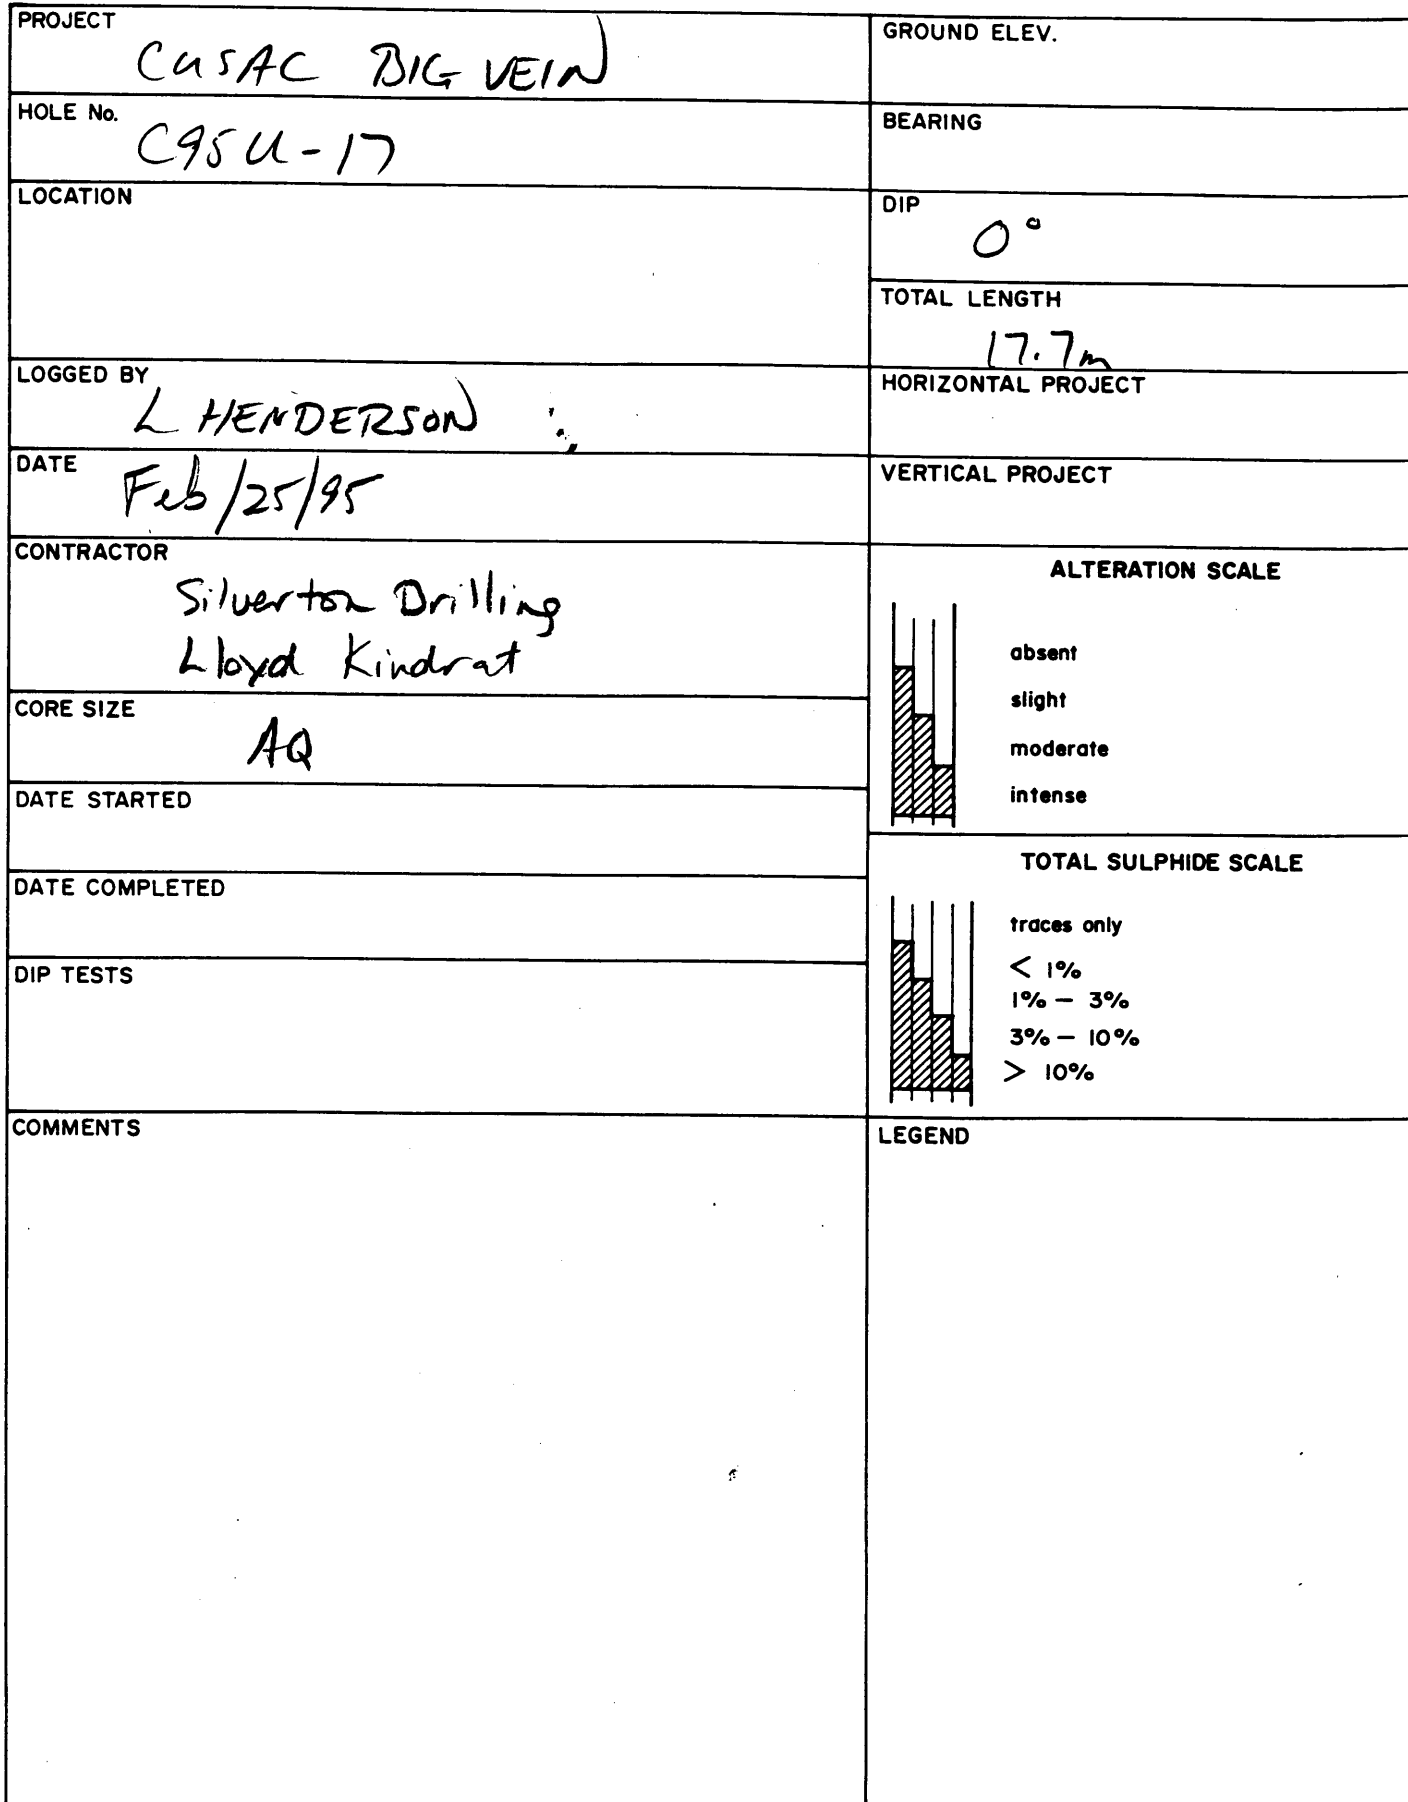 PROJECT
CUSAC BIG VEIN
HOLE No.
C95U-17
LOCATION
LOGGED BY
L HENDERSON
DATE
Feb/25/95
CONTRACTOR
Silverton Drilling
Lloyd Kindrat
CORE SIZE
AQ
DATE STARTED
DATE COMPLETED
DIP TESTS
COMMENTS
GROUND ELEV.
BEARING
DIP
0°
TOTAL LENGTH
17.7m
HORIZONTAL PROJECT
VERTICAL PROJECT
ALTERATION SCALE
absent
slight
moderate
intense
TOTAL SULPHIDE SCALE
traces only
< 1%
1% – 3%
3% – 10%
> 10%
LEGEND